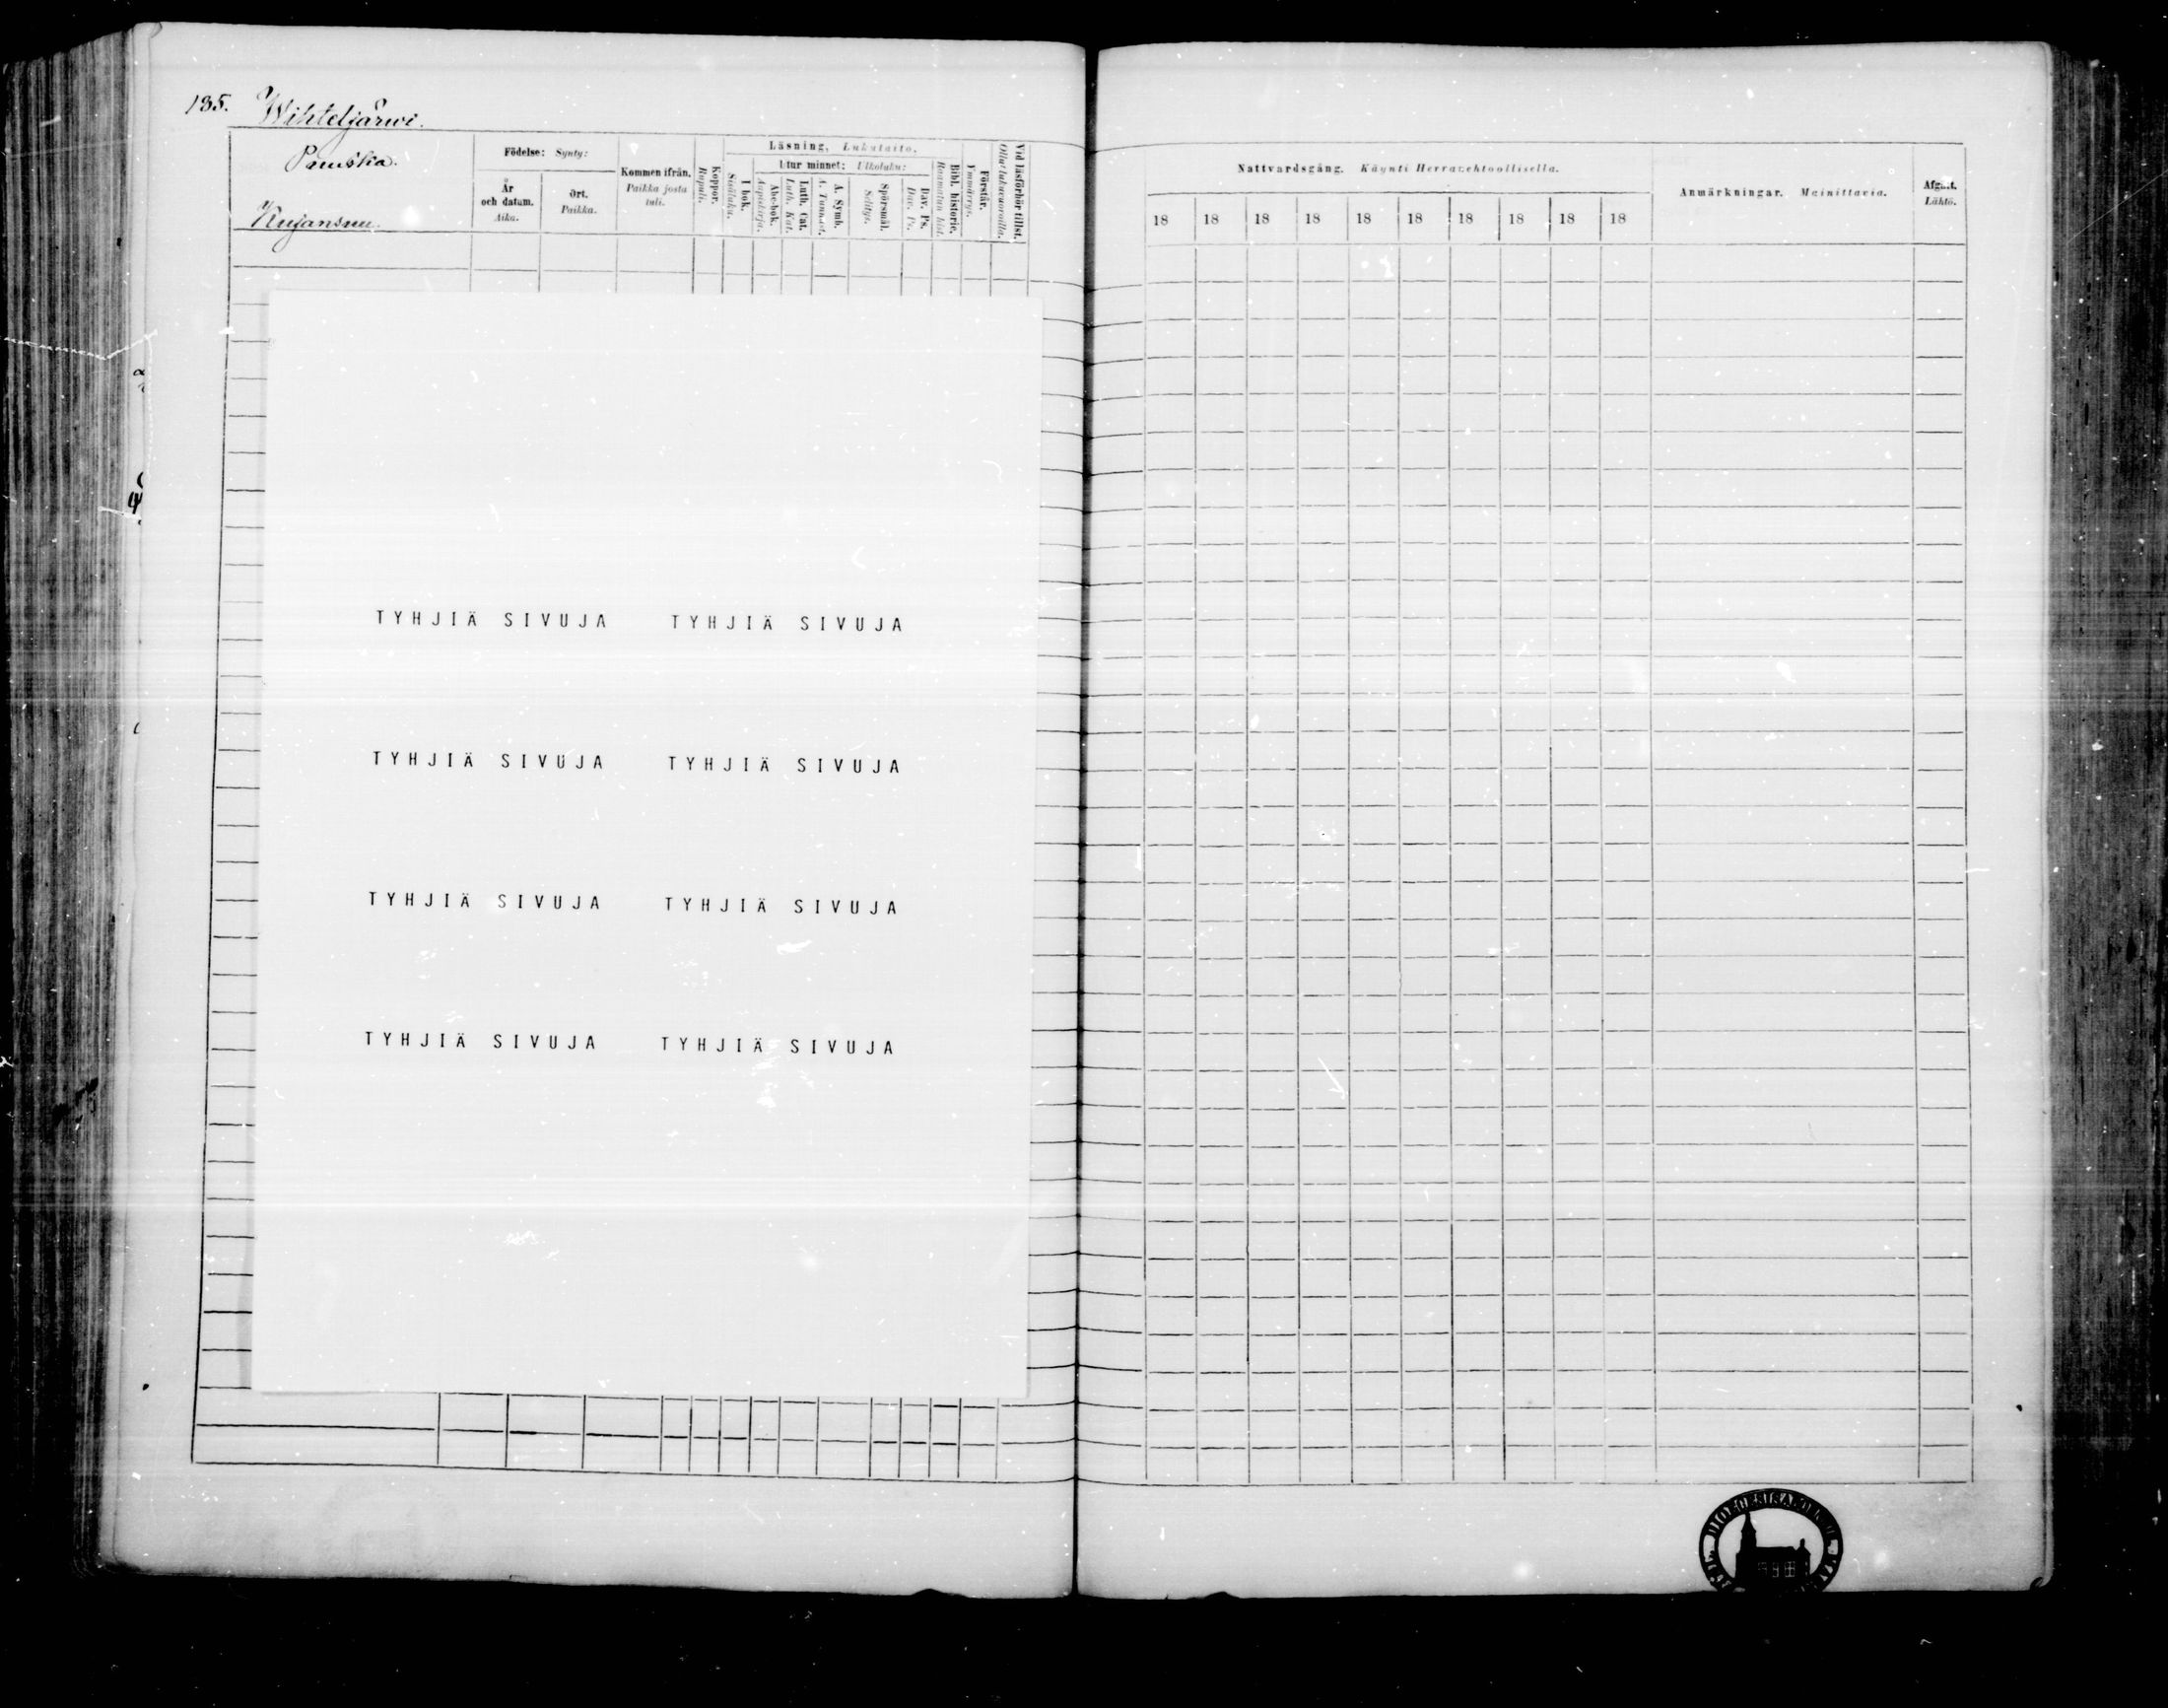 135. Wihteljärwi.
Födelse: Synty:
År och datum. Aika.
Ort. Paikka.
Kommen ifrån. Paikka josta tuli.
Koppor. Rupuli.
Läsning, Lukutaito.
I bok. Sisäluku.
Utur minnet: Ulkoluku:
Abc-bok. Aapiskirja.
Luth. Cat. Luth. Kat.
A. Symb. A. Tunnust.
Spörsmål. Selitys.
Dav. Ps. Dav. Ps.
Bibl. historie. Raamatun hist.
Förstår. Ymmärrys.
Vid läsförhör tillst. Ollut lukuvuoroilla.
Kujansuu.
Nattvardsgång. Käynti Herranehtoollisella.
18 18 18 18 18 18 18 18 18 18
Anmärkningar. Mainittavia.
Afgått. Lähtö.
TYHJIÄ SIVUJA TYHJIÄ SIVUJA
TYHJIÄ SIVUJA TYHJIÄ SIVUJA
TYHJIÄ SIVUJA TYHJIÄ SIVUJA
TYHJIÄ SIVUJA TYHJIÄ SIVUJA